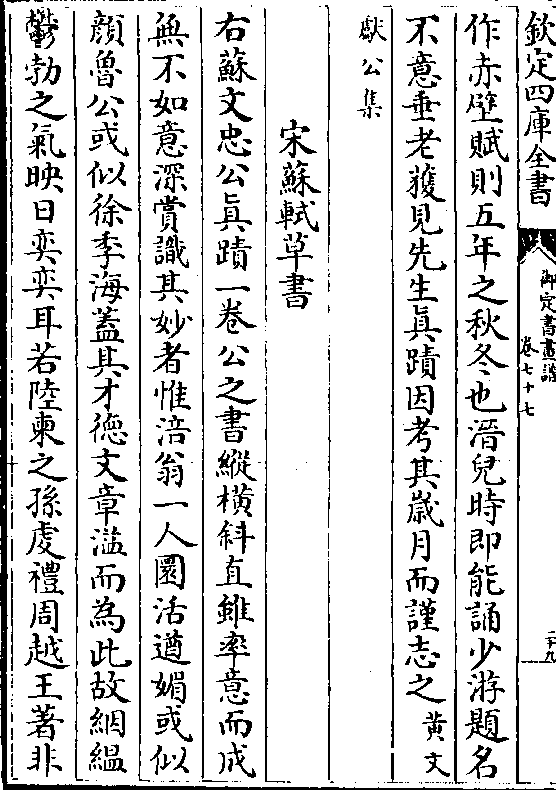 欽定四庫全書
御定書畫譜
卷七十七
二十九
作赤壁賦則五年之秋冬也溍兒時即能誦少游題名
不意垂老獲見先生真蹟因考其歲月而謹志之黃文
獻公集
宋蘇軾草書
右蘇文忠公真蹟一卷公之書縱橫斜直雖率意而成
無不如意深賞識其妙者惟涪翁一人圜活遒媚或似
顔魯公或似徐季海蓋其才德文章溢而為此故絪縕
鬱勃之氣映日奕奕耳若陸柬之孫虔禮周越王著非